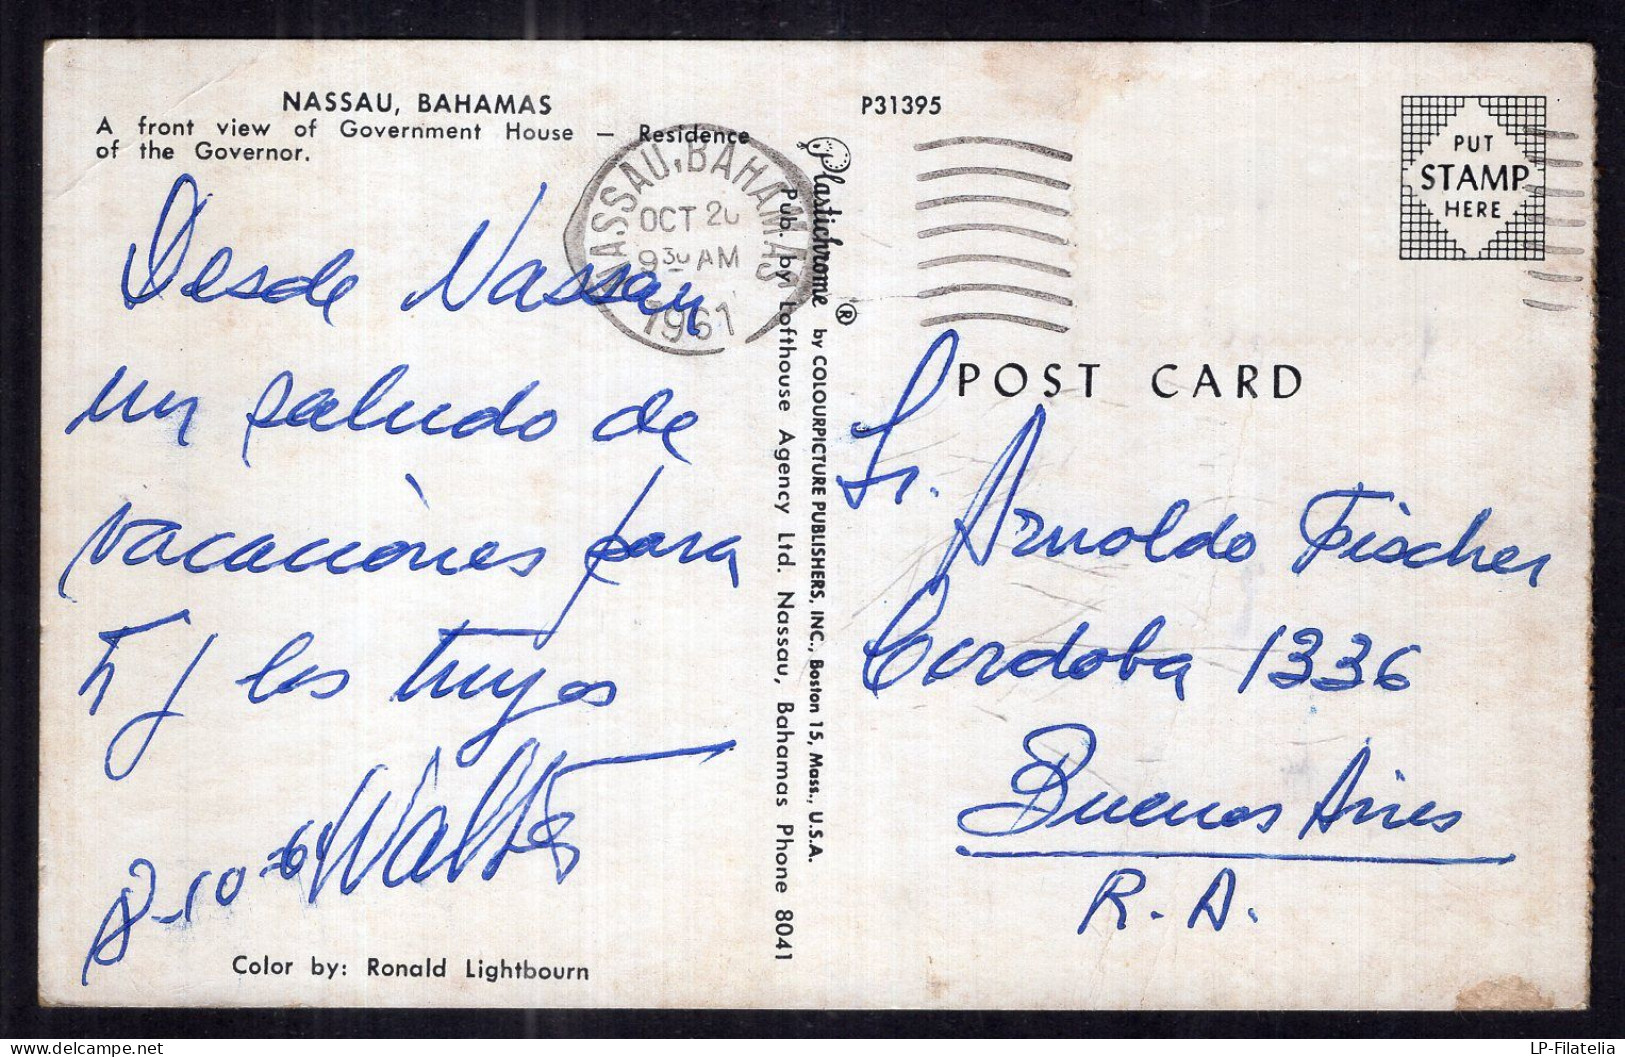 NASSAU, BAHAMAS
A front view of Government House — Residence
of the Governor.
Desde Nassau
un saludo de
vacaciónes para
Tí y los tuyos
Walter
Color by: Ronald Lightbourn
NASSAU, BAHAMAS
OCT 20
9 30 AM
1961
Plastichrome ® by COLOURPICTURE PUBLISHERS, INC., Boston 15, Mass., U.S.A.
Pub. by Lofthouse Agency Ltd. Nassau, Bahamas Phone 8041
P31395
PUT
STAMP
HERE
POST CARD
Sr. Arnoldo Fischer
Cordoba 1336
Buenos Aires
R. A.
LP-Filatelia
delcampe.net